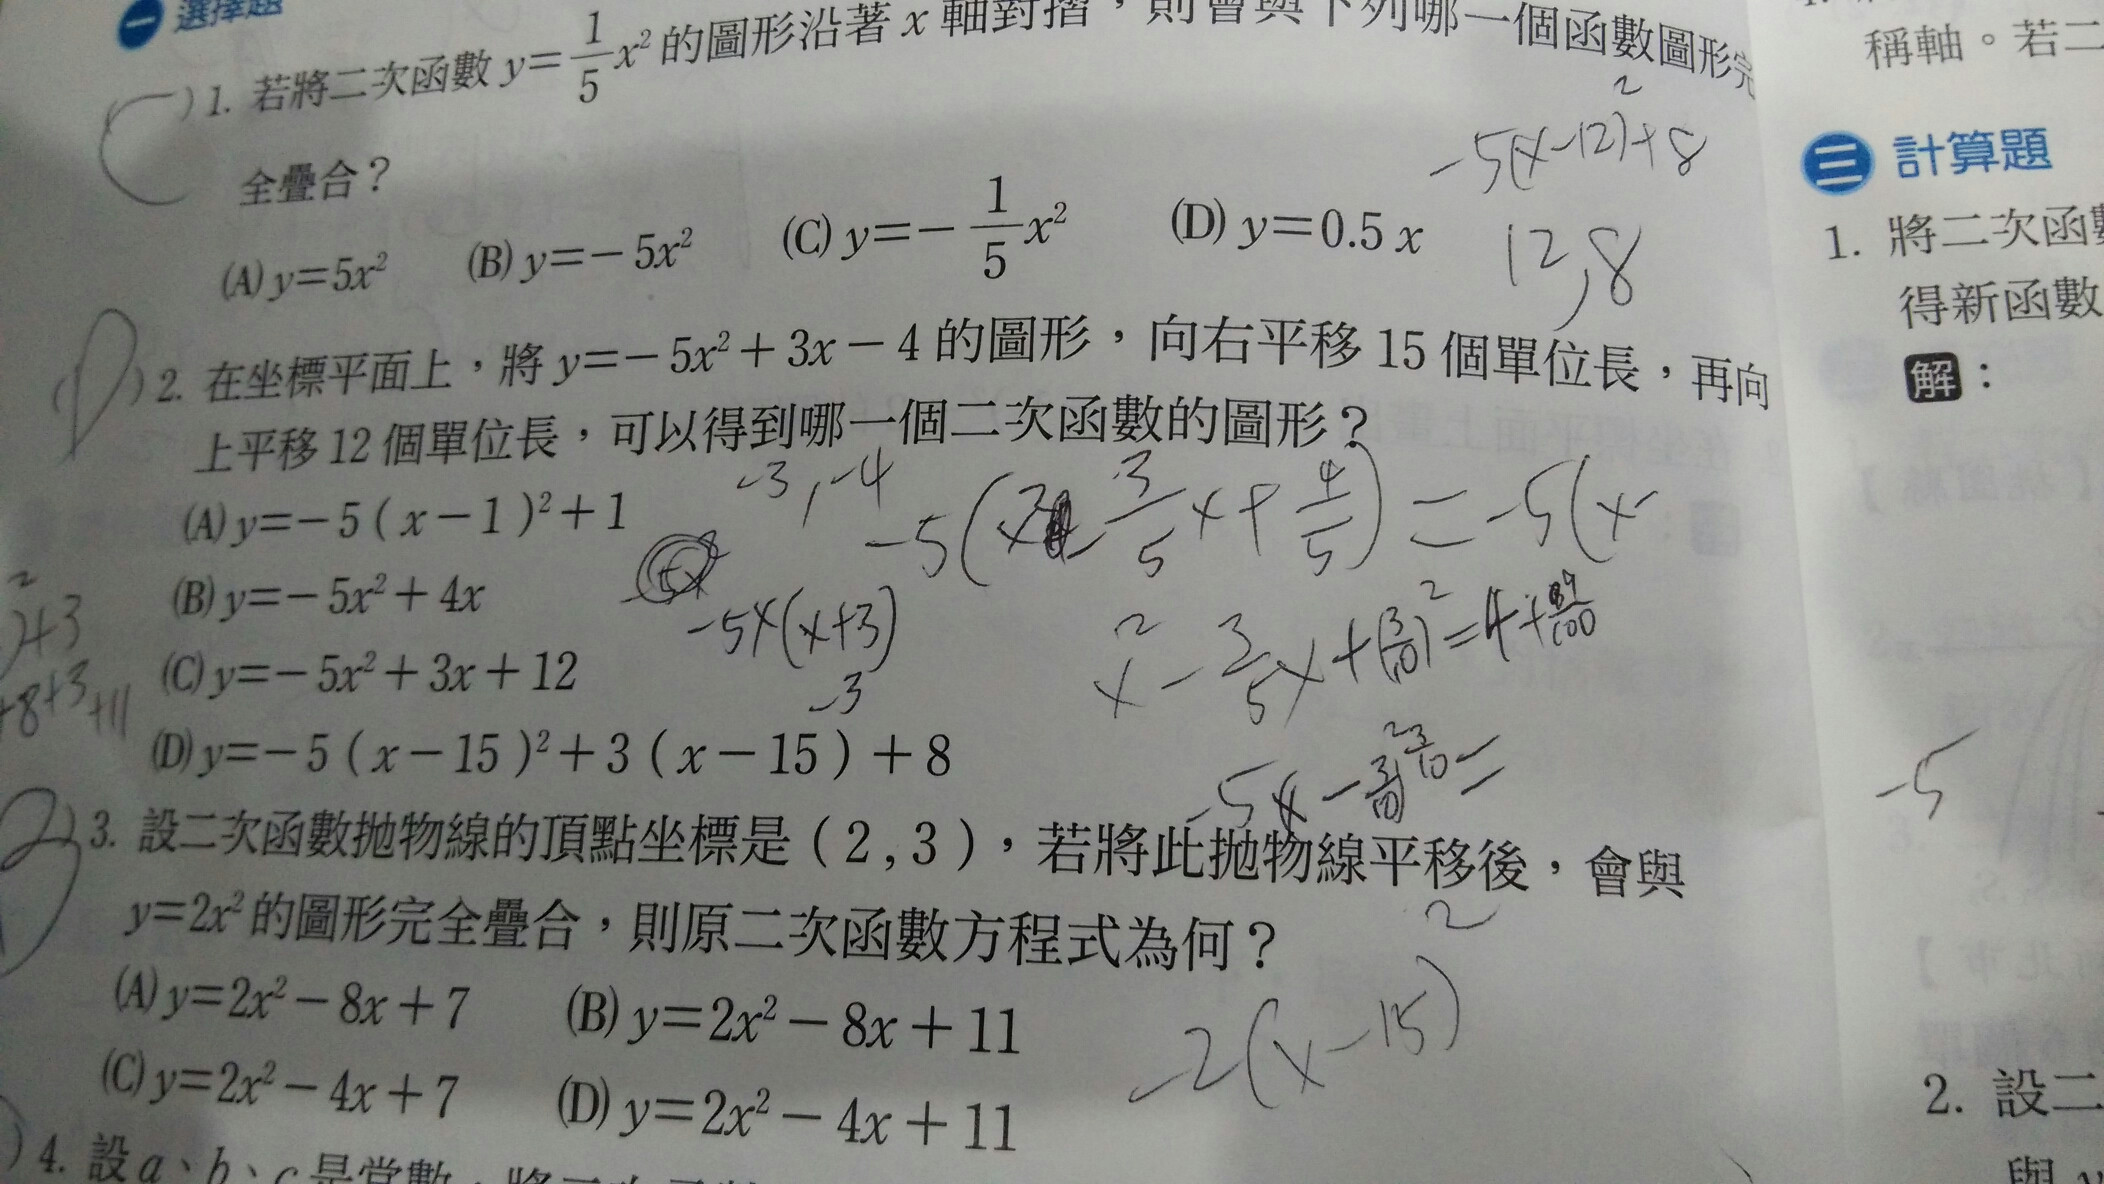 一 選擇題
1. 若將二次函數 y=1/5x²的圖形沿著 x 軸對摺,則會與下列哪一個函數圖形完
全疊合?
(A) y=5x² (B) y=-5x² (C) y=-1/5x² (D) y=0.5 x
C
-5(x-12)²+8
12,8
2. 在坐標平面上,將 y=-5x²+3x-4 的圖形,向右平移 15 個單位長,再向
上平移 12 個單位長,可以得到哪一個二次函數的圖形?
D
(A) y=-5(x-1)²+1
(B) y=-5x²+4x
(C) y=-5x²+3x+12
(D) y=-5(x-15)²+3(x-15)+8
-3,-4
-5x(x+3)
-3
)²+3
+8+3 +11
3. 設二次函數拋物線的頂點坐標是(2,3),若將此拋物線平移後,會與
y=2x²的圖形完全疊合,則原二次函數方程式為何?
B
(A) y=2x²-8x+7 (B) y=2x²-8x+11
(C) y=2x²-4x+7 (D) y=2x²-4x+11
-2(x-15)²
)4. 設 a、b、c 是常數,將二次函數
稱軸。若二
三 計算題
1. 將二次函數
得新函數
解:
-5
2. 設二
與 y